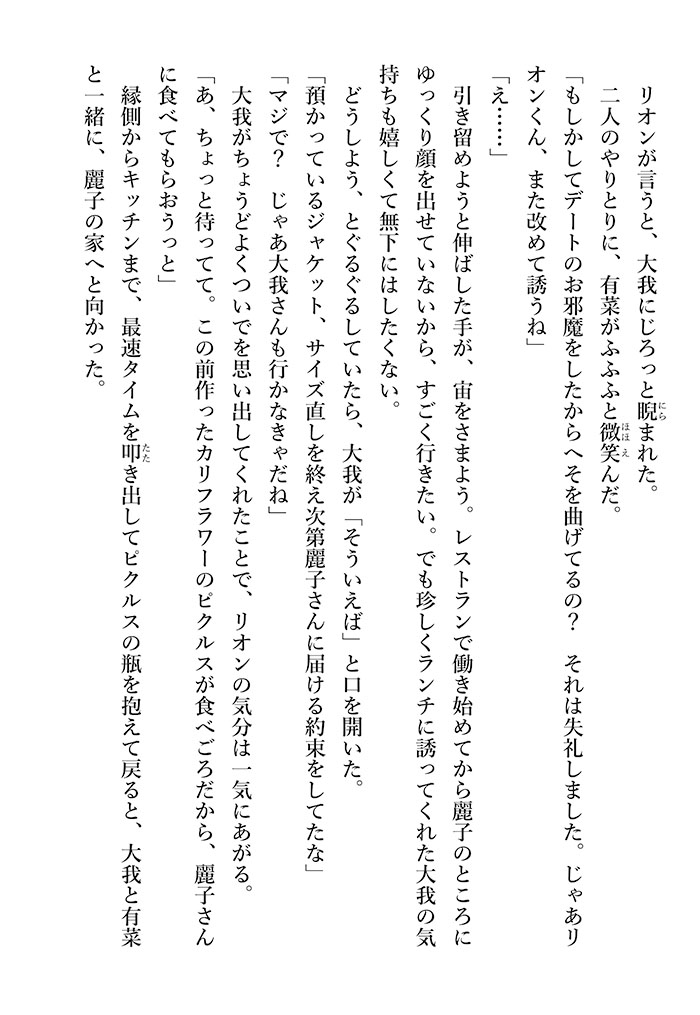 リオンが言うと、大我にじろっと睨まれた。
二人のやりとりに、有菜がふふふと微笑んだ。
「もしかしてデートのお邪魔をしたからへそを曲げてるの？　それは失礼しました。じゃあリ
オンくん、また改めて誘うね」
「え……」
引き留めようと伸ばした手が、宙をさまよう。レストランで働き始めてから麗子のところに
ゆっくり顔を出せていないから、すごく行きたい。でも珍しくランチに誘ってくれた大我の気
持ちも嬉しくて無下にはしたくない。
どうしよう、とぐるぐるしていたら、大我が「そういえば」と口を開いた。
「預かっているジャケット、サイズ直しを終え次第麗子さんに届ける約束をしてたな」
「マジで？　じゃあ大我さんも行かなきゃだね」
大我がちょうどよくついでを思い出してくれたことで、リオンの気分は一気にあがる。
「あ、ちょっと待ってて。この前作ったカリフラワーのピクルスが食べごろだから、麗子さん
に食べてもらおうっと」
縁側からキッチンまで、最速タイムを叩き出してピクルスの瓶を抱えて戻ると、大我と有菜
と一緒に、麗子の家へと向かった。